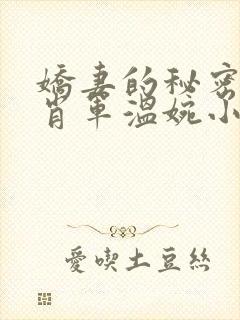 嬌妻的秘密
肖軍溫婉小
愛喫土豆絲